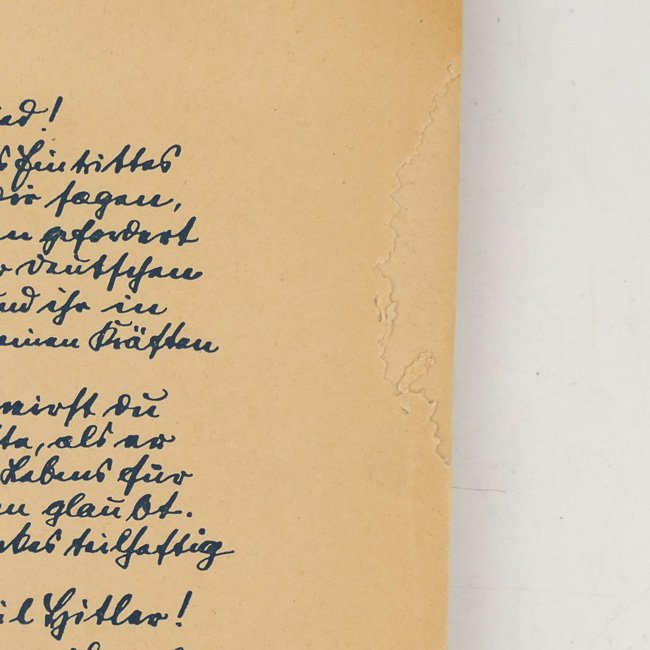 ed!
s Eintrittes
dir sagen,
n gefordert
r deutschen
und ihr in
einen Kräften
wirst du
te, als er
Lebens für
en glaubt.
kes teilhaftig
il Hitler!